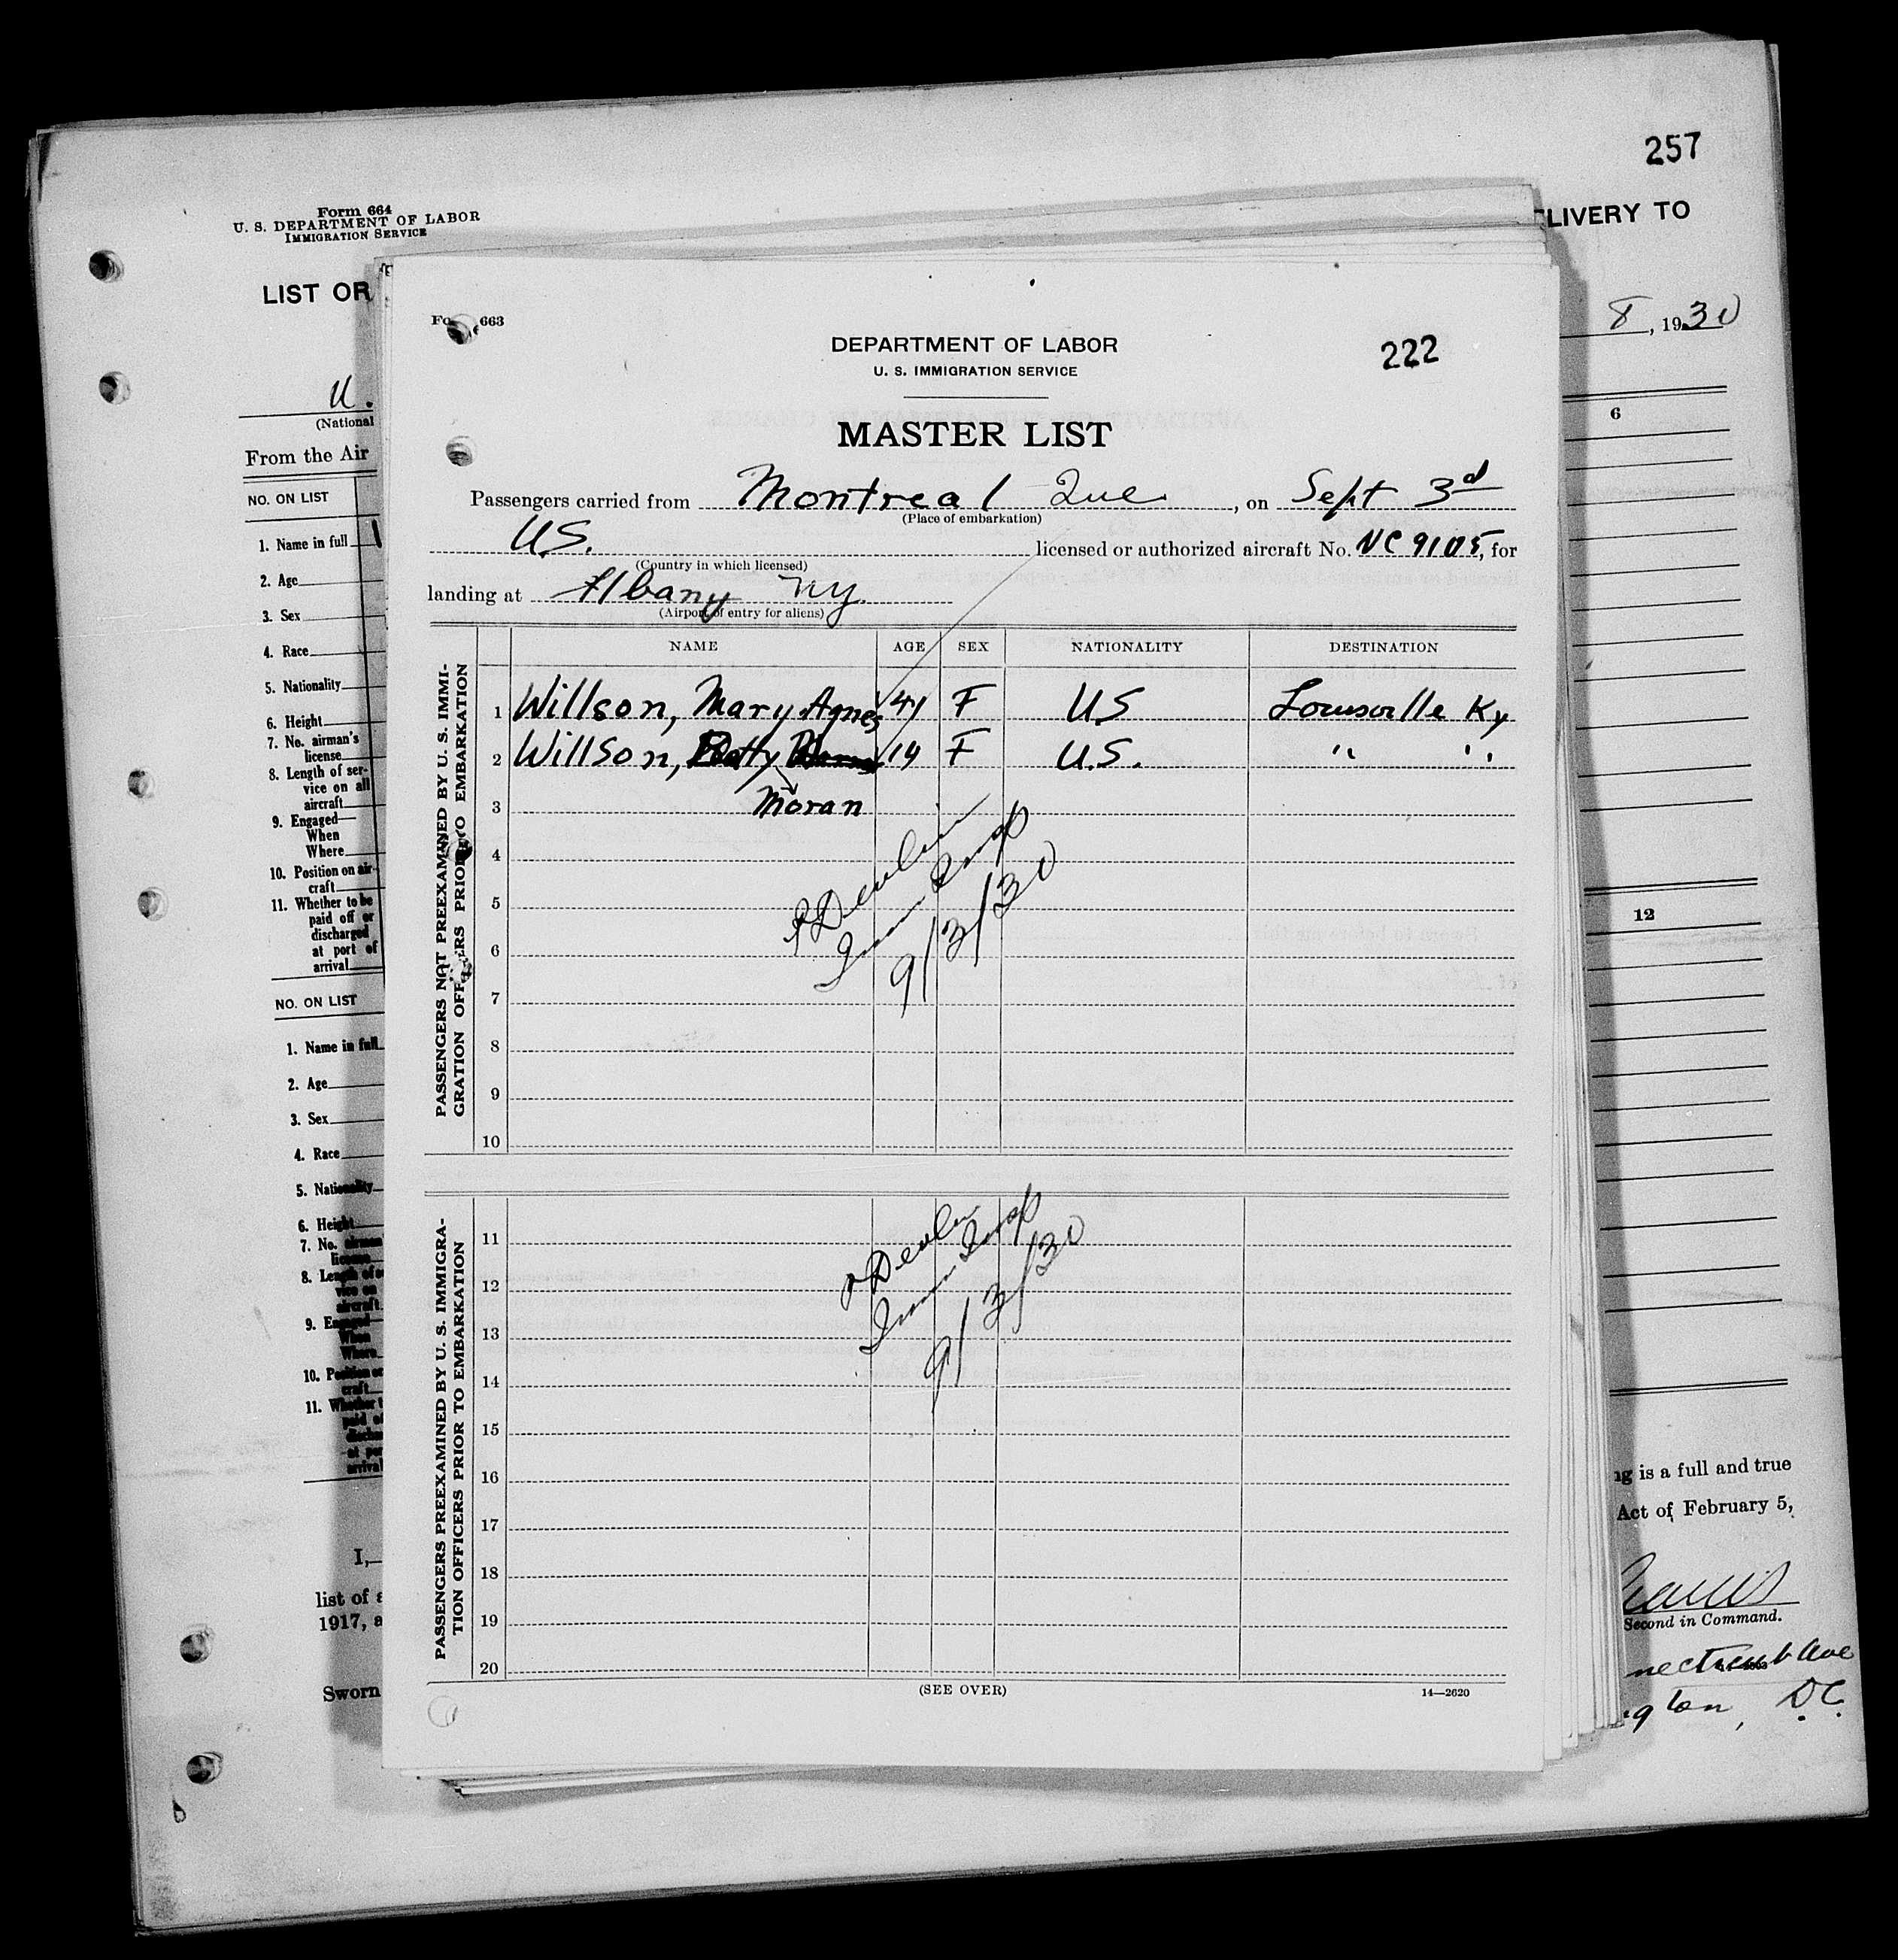 257
Form 664
U. S. DEPARTMENT OF LABOR
IMMIGRATION SERVICE
LIVERY TO
LIST OR
8, 1930
U.
(National
From the Air
6
NO. ON LIST
1. Name in full
2. Age
3. Sex
4. Race
5. Nationality
6. Height
7. No. airman's
license
8. Length of ser-
vice on all
aircraft
9. Engaged—
When
Where
10. Position on air-
craft
11. Whether to be
paid off or
discharged
at port of
arrival
12
NO. ON LIST
1. Name in full
2. Age
3. Sex
4. Race
5. Nationality
6. Height
7. No. airman
license
8. Length of se
vice on
aircraft
9. Engaged
When
Where
10. Position on
craft
11. Whether t
paid of
discha
at por
arrival
I,
list of a
1917, a
Sworn
ng is a full and true
Act of February 5,
Second in Command.
necticut Ave
gton, D.C.
663
DEPARTMENT OF LABOR
U. S. IMMIGRATION SERVICE
222
MASTER LIST
Passengers carried from Montreal Que, on Sept 3d
(Place of embarkation)
U.S. licensed or authorized aircraft No. NC 9105, for
(Country in which licensed)
landing at Albany NY.
(Airport of entry for aliens)
NAME AGE SEX NATIONALITY DESTINATION
PASSENGERS NOT PREEXAMINED BY U. S. IMMI-
GRATION OFFICERS PRIOR TO EMBARKATION
1 Willson, Mary Agnes 41 F US Louisville Ky
2 Willson, Betty 14 F U.S. " "
3 Moran
4
5
6
7
8
9
10
Devlin
Imm Insp
9/3/30
PASSENGERS PREEXAMINED BY U. S. IMMIGRA-
TION OFFICERS PRIOR TO EMBARKATION
11
12
13
14
15
16
17
18
19
20
Devlin
Imm Insp
9/3/30
(SEE OVER)
14—2620